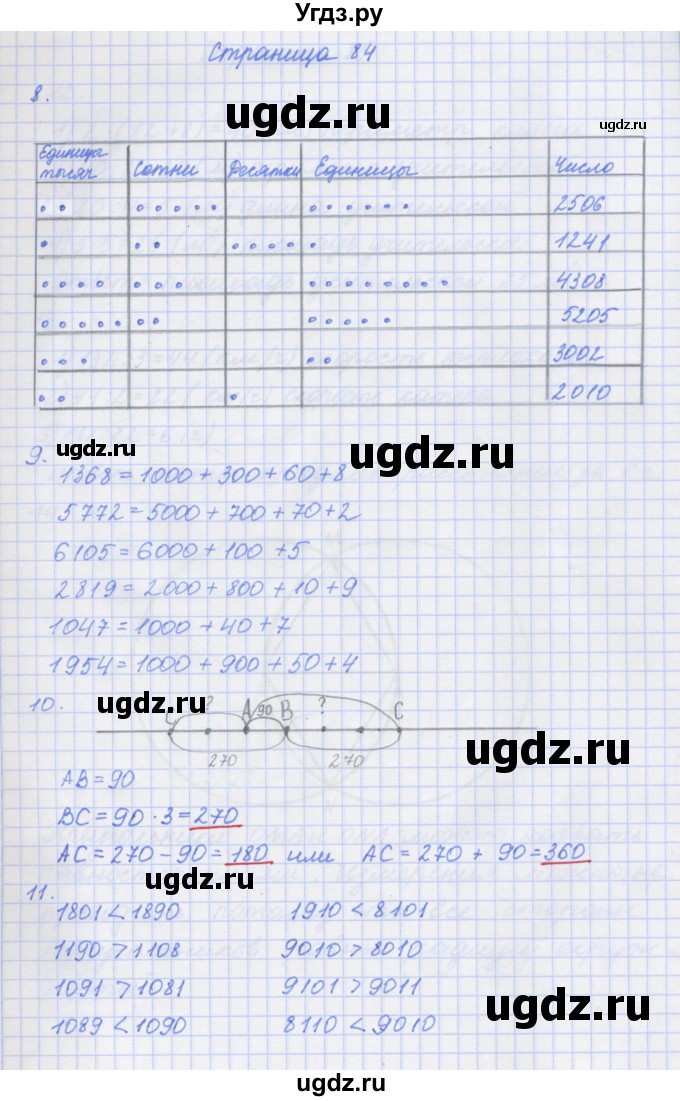 Угдз.ру
Страница 84
ugdz.ru
ugdz.ru
ugdz.ru
8.
Единицы тысяч Сотни Десятки Единицы Число
2506
1241
4308
5205
3002
2010
ugdz.ru
ugdz.ru
9.
1368 = 1000 + 300 + 60 + 8
5772 = 5000 + 700 + 70 + 2
6105 = 6000 + 100 + 5
2819 = 2000 + 800 + 10 + 9
1047 = 1000 + 40 + 7
1954 = 1000 + 900 + 50 + 4
10.
ugdz.ru
? A 90 B ? C
270 270
ugdz.ru
AB = 90
BC = 90 · 3 = 270
AC = 270 - 90 = 180 или AC = 270 + 90 = 360
ugdz.ru
11.
1801 < 1890 1910 < 8101
1190 > 1108 9010 > 8010
1091 > 1081 9101 > 9011
1089 < 1090 8110 < 9010
ugdz.ru
ugdz.ru